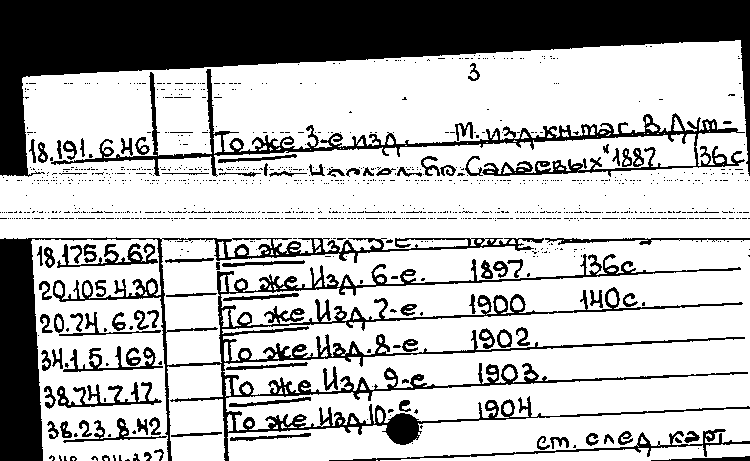 3
18.191.6.46 То же. 3-е изд. М., изд. кн. маг. В. Дум-
Наслед. бр. Салаевых", 1887. 136с
18.175.5.62 То же. Изд. 5-е.
20.105.4.30 То же. Изд. 6-е. 1897. 136с.
20.74.6.27 То же. Изд. 7-е. 1900 140с.
34.1.5.169. То же. Изд. 8-е. 1902.
38.74.7.17. То же. Изд. 9-е. 1903.
38.23.8.42 То же. Изд. 10-е. 1904.
ст. след. карт.